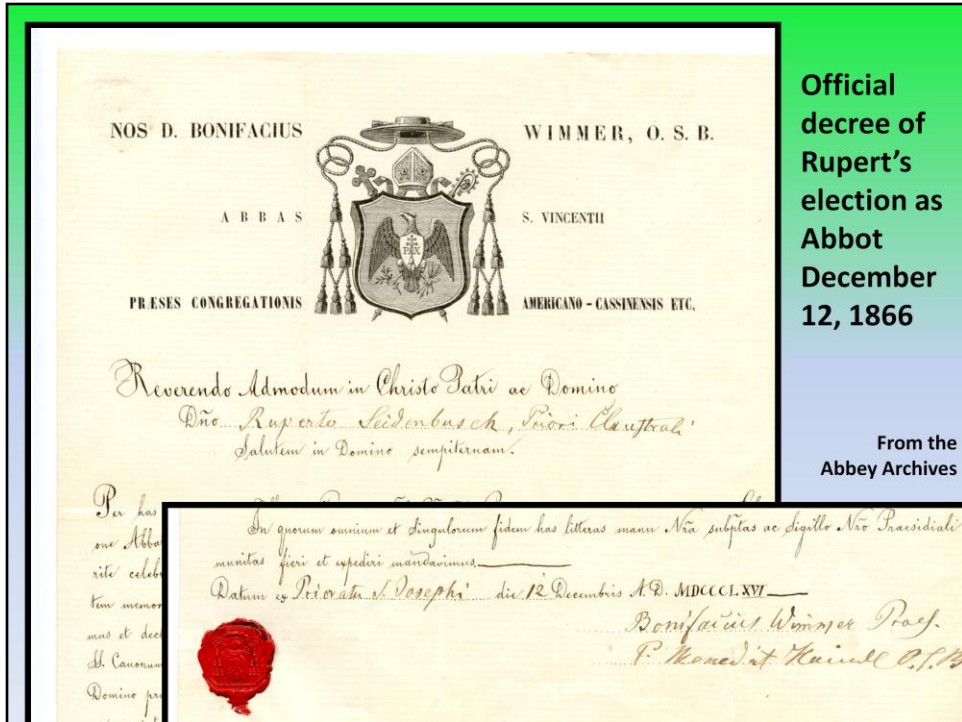 NOS D. BONIFACIUS WIMMER, O. S. B.
ABBAS S. VINCENTII
PAX
PRÆSES CONGREGATIONIS AMERICANO-CASSINENSIS ETC.
Reverendo Admodum in Christo Patri ac Domino
Dño Ruperto Seidenbusch, Priori Claustrali
Salutem in Domino sempiternam.
Per has
one Abba
rite celeb
tem memor
mus et dec
SS. Canonum
Domino pr
In quorum omnium et singulorum fidem has litteras manu Nrã subptas ac sigillo Nro Praesidiali
munitas fieri et expediri mandavimus.
Datum ex Prioratu S. Josephi die 12 Decembris A. D. MDCCCLXVI
Bonifacius Wimmer Praes.
P. Benedict Haindl O.S.B
Official
decree of
Rupert’s
election as
Abbot
December
12, 1866
From the
Abbey Archives